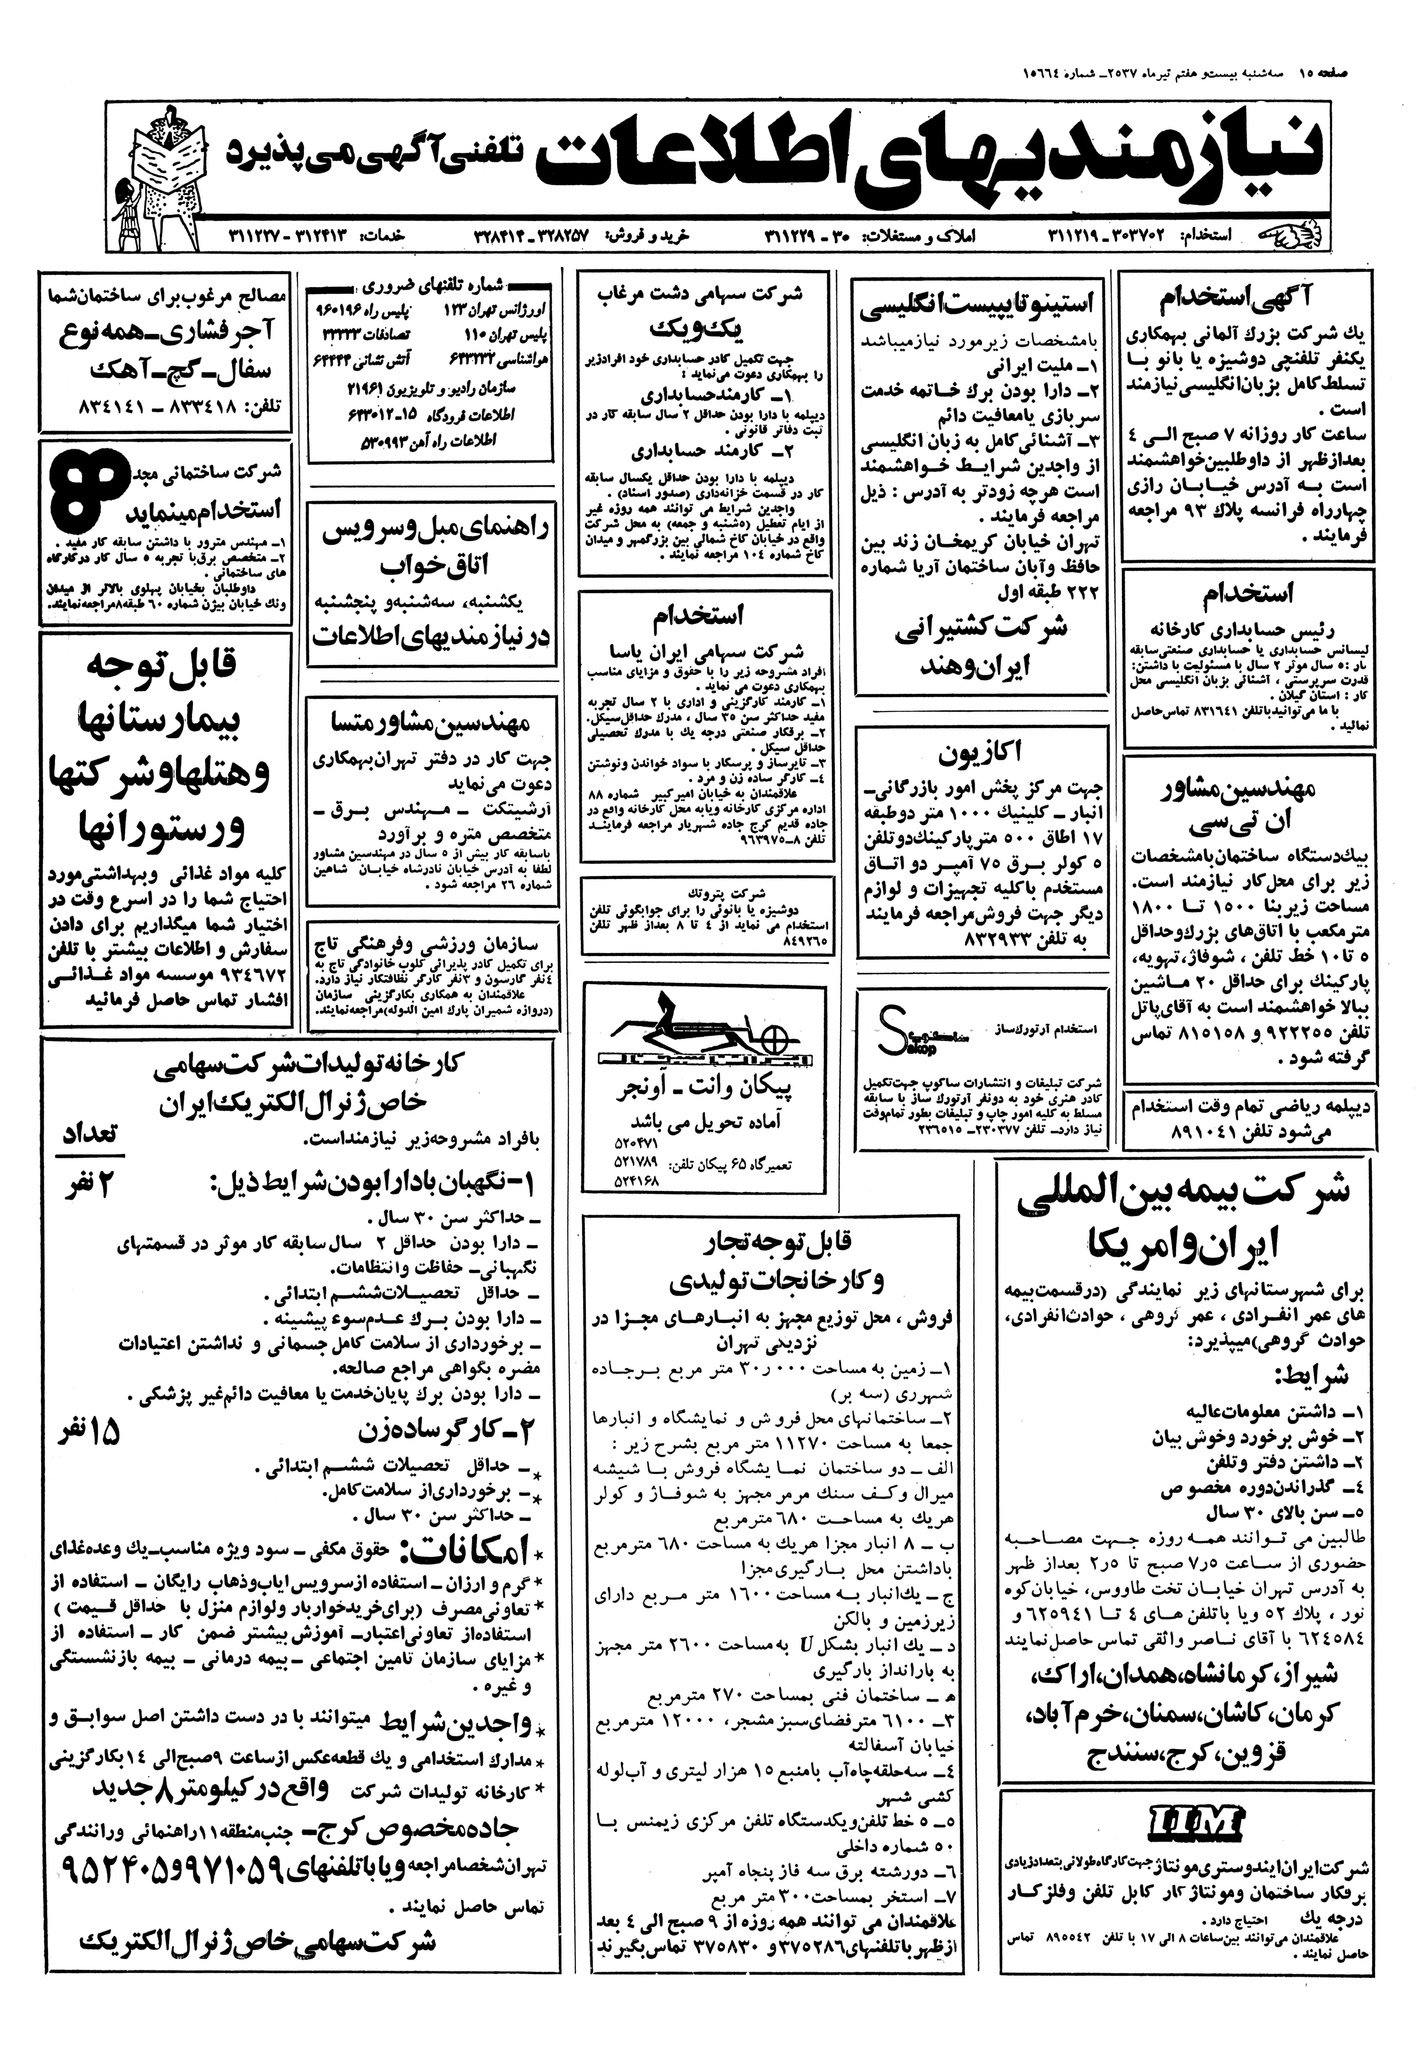 صفحه ۱۵ سه‌شنبه بیست و هفتم تیرماه ۲۵۳۷ـ شماره ۱۵۶۶۴
نیازمندیهای اطلاعات تلفنی آگهی می پذیرد
استخدام: ۳۰۳۷۰۲ـ ۳۱۱۲۱۹
املاک و مستغلات: ۳۰ - ۳۱۱۲۲۹
خرید و فروش: ۳۲۸۲۵۷ـ ۳۲۸۴۱۴
خدمات: ۳۱۲۴۱۳- ۳۱۱۲۲۷
آگهی استخدام
یك شرکت بزرگ آلمانی بهمکاری
یکنفر تلفنچی دوشیزه یا بانو با
تسلط کامل بزبان انگلیسی نیازمند
است .
ساعت کار روزانه ۷ صبح الی ۴
بعدازظهر از داوطلبین خواهشمند
است به آدرس خیابان رازی
چهارراه فرانسه پلاك ۹۳ مراجعه
فرمایند .
استخدام
رئیس حسابداری کارخانه
لیسانس حسابداری یا حسابداری صنعتی سابقه
کار : ۵ سال موثر ۲ سال با مسئولیت با داشتن:
قدرت سرپرستی ، آشنائی بزبان انگلیسی محل
کار : استان گیلان .
با ما می‌توانید با تلفن ۸۳۱۶۴۱ تماس حاصل
نمائید .
مهندسین مشاور
ان تی سی
بیك دستگاه ساختمان بامشخصات
زیر برای محل کار نیازمند است.
مساحت زیربنا ۱۵۰۰ تا ۱۸۰۰
مترمکعب با اتاق‌های بزرگ و حداقل
۵ تا ۱۰ خط تلفن ، شوفاژ، تهویه،
پارکینك برای حداقل ۲۰ ماشین
ببالا خواهشمند است به آقای پاتل
تلفن ۹۲۲۲۵۵ و ۸۱۵۱۵۸ تماس
گرفته شود .
دیپلمه ریاضی تمام وقت استخدام
می‌شود تلفن ۸۹۱۰۴۱
استینو تایپیست انگلیسی
بامشخصات زیر مورد نیاز میباشد
۱ـ ملیت ایرانی
۲ـ دارا بودن برك خاتمه خدمت
سربازی یا معافیت دائم
۳ـ آشنائی کامل به زبان انگلیسی
از واجدین شرایط خواهشمند
است هرچه زودتر به آدرس : ذیل
مراجعه فرمایند .
تهران خیابان کریمخان زند بین
حافظ و آبان ساختمان آریا شماره
۲۲۲ طبقه اول
شرکت کشتیرانی
ایران و هند
اکازیون
جهت مرکز پخش امور بازرگانی ـ
انبار ـ کلینیك ۱۰۰۰ متر دوطبقه
۱۷ اطاق ۵۰۰ متر پارکینك دو تلفن
۵ کولر برق ۷۵ آمپر دو اتاق
مستخدم باکلیه تجهیزات و لوازم
دیگر جهت فروش مراجعه فرمایند
به تلفن ۸۳۲۹۳۳
استخدام آرتورك ساز
Sakop
شرکت تبلیغات و انتشارات ساکوپ جهت تکمیل
کادر هنری خود به دونفر آرتورك ساز با سابقه
مسلط به کلیه امور چاپ و تبلیغات بطور تمام‌وقت
نیاز دارد ـ تلفن ۲۳۰۳۷۷ـ ۲۳۶۵۱۵
شرکت سهامی دشت مرغاب
یك و یك
جهت تکمیل کادر حسابداری خود افرادزیر
را بهمکاری دعوت می‌نماید :
۱ـ کارمند حسابداری
دیپلمه با دارا بودن حداقل ۲ سال سابقه کار در
ثبت دفاتر قانونی .
۲ـ کارمند حسابداری
دیپلمه با دارا بودن حداقل یکسال سابقه
کار در قسمت خزانه‌داری (صدور اسناد) .
واجدین شرایط می توانند همه روزه غیر
از ایام تعطیل (۵شنبه و جمعه) به محل شرکت
واقع در خیابان کاخ شمالی بین بزرگمهر و میدان
کاخ شماره ۱۰۴ مراجعه نمایند .
استخدام
شرکت سهامی ایران یاسا
افراد مشروحه زیر را با حقوق و مزایای مناسب
بهمکاری دعوت می نماید .
۱ـ کارمند کارگزینی و اداری با ۲ سال تجربه
مفید حداکثر سن ۳۵ سال ، مدرك حداقل سیکل.
۲ـ برقکار صنعتی درجه یك با مدرك تحصیلی
حداقل سیکل .
۳ـ تایرساز و پرسکار با سواد خواندن و نوشتن
۴ـ کارگر ساده زن و مرد .
علاقمندان به خیابان امیرکبیر شماره ۸۸
اداره مرکزی کارخانه ویابه محل کارخانه واقع در
جاده قدیم کرج جاده شهریار مراجعه فرمایند
تلفن ۸ـ۹۶۳۹۷۵
شرکت پتروتك
دوشیزه یا بانوئی را برای جوابگوئی تلفن
استخدام می نماید از ۴ تا ۸ بعداز ظهر تلفن
۸۴۹۲۶۵
پیکان وانت ـ آونجر
آماده تحویل می باشد
تعمیرگاه ۶۵ پیکان تلفن:
۵۲۰۴۷۱
۵۲۱۷۸۹
۵۲۴۱۶۸
شماره تلفنهای ضروری
اورژانس تهران ۱۲۳ پلیس راه ۹۶۰۱۹۶
پلیس تهران ۱۱۰ تصادفات ۳۳۳۳۳
هواشناسی ۶۴۳۲۳۲ آتش نشانی ۶۴۴۴۴
سازمان رادیو و تلویزیون ۲۱۹۶۱
اطلاعات فرودگاه ۱۵ـ۶۴۳۰۱۲
اطلاعات راه آهن ۵۳۰۹۹۳
راهنمای مبل و سرویس
اتاق خواب
یکشنبه، سه‌شنبه و پنجشنبه
در نیازمندیهای اطلاعات
مهندسین مشاور متسا
جهت کار در دفتر تهران بهمکاری
دعوت می‌نماید
آرشیتکت ـ مهندس برق ـ
متخصص متره و برآورد
باسابقه کار بیش از ۵ سال در مهندسین مشاور
لطفا به آدرس خیابان نادرشاه خیابان شاهین
شماره ۲۶ مراجعه شود .
سازمان ورزشی و فرهنگی تاج
برای تکمیل کادر پذیرائی کلوب خانوادگی تاج به
۴نفر گارسون و ۳نفر کارگر نظافتکار نیاز دارد.
علاقمندان به همکاری بکارگزینی سازمان
(دروازه شمیران پارك امین الدوله)مراجعه‌نمایند.
مصالح مرغوب برای ساختمان شما
آجرفشاری ـ همه نوع
سفال ـ گچ ـ آهك
تلفن: ۸۳۳۴۱۸ - ۸۳۴۱۴۱
شرکت ساختمانی مجد
استخدام مینماید
۱ـ مهندس مترور با داشتن سابقه کار مفید .
۲ـ متخصص برق با تجربه ۵ سال کار در کارگاه
های ساختمانی .
داوطلبان بخیابان پهلوی بالاتر از میدان
ونك خیابان بیژن شماره ۶۰ طبقه۸مراجعه‌نمایند.
قابل توجه
بیمارستانها
و هتلها و شرکتها
و رستورانها
کلیه مواد غذائی وبهداشتی مورد
احتیاج شما را در اسرع وقت در
اختیار شما میگذاریم برای دادن
سفارش و اطلاعات بیشتر با تلفن
۹۳۴۶۷۲ موسسه مواد غذائی
افشار تماس حاصل فرمائید
کارخانه تولیدات شرکت سهامی
خاص ژنرال الکتریك ایران
بافراد مشروحه زیر نیازمند است.
تعداد
۱- نگهبان با دارا بودن شرایط ذیل: ۲ نفر
ـ حداکثر سن ۳۰ سال .
ـ دارا بودن حداقل ۲ سال سابقه کار موثر در قسمتهای
نگهبانی ـ حفاظت و انتظامات.
ـ حداقل تحصیلات ششم ابتدائی .
ـ دارا بودن برك عدم سوء پیشینه .
ـ برخورداری از سلامت کامل جسمانی و نداشتن اعتیادات
مضره بگواهی مراجع صالحه.
ـ دارا بودن برك پایان خدمت یا معافیت دائم غیر پزشکی .
۲ـ کارگر ساده زن ۱۵ نفر
ـ حداقل تحصیلات ششم ابتدائی .
ـ برخورداری از سلامت کامل.
ـ حداکثر سن ۳۰ سال .
* امکانات: حقوق مکفی ـ سود ویژه مناسب ـ یك وعده غذای
* گرم و ارزان ـ استفاده از سرویس ایاب وذهاب رایگان ـ استفاده از
* تعاونی مصرف (برای خرید خواربار ولوازم منزل با حداقل قیمت )
استفاده از تعاونی اعتبار ـ آموزش بیشتر ضمن کار ـ استفاده از
* مزایای سازمان تامین اجتماعی ـ بیمه درمانی ـ بیمه بازنشستگی
و غیره .
* واجدین شرایط میتوانند با در دست داشتن اصل سوابق و
* مدارك استخدامی و یك قطعه عکس از ساعت ۹صبح الی ۱۴ بکارگزینی
* کارخانه تولیدات شرکت واقع در کیلومتر ۸ جدید
جاده مخصوص کرج ـ جنب منطقه ۱۱ راهنمائی ورانندگی
تهران شخصا مراجعه و یا با تلفنهای ۹۷۱۰۵۹ و ۹۵۲۴۰۵
تماس حاصل نمایند .
شرکت سهامی خاص ژنرال الکتریك
قابل توجه تجار
و کارخانجات تولیدی
فروش ، محل توزیع مجهز به انبارهای مجزا در
نزدیکی تهران
۱ـ زمین به مساحت ۳۰٫۰۰۰ متر مربع برجاده
شهرری (سه بر)
۲ـ ساختمانهای محل فروش و نمایشگاه و انبارها
جمعا به مساحت ۱۱۲۷۰ متر مربع بشرح زیر :
الف ـ دو ساختمان نمایشگاه فروش با شیشه
میرال وکف سنك مرمر مجهز به شوفاژ و کولر
هریك به مساحت ۶۸۰ مترمربع
ب ـ ۸ انبار مجزا هریك به مساحت ۶۸۰ مترمربع
باداشتن محل بارگیری مجزا
ج ـ یك انبار به مساحت ۱۶۰۰ متر مربع دارای
زیرزمین و بالکن
د ـ یك انبار بشکل U به مساحت ۲۶۰۰ متر مجهز
به بارانداز بارگیری
ه ـ ساختمان فنی بمساحت ۲۷۰ مترمربع
۳ـ ۶۱۰۰ متر فضای سبز مشجر، ۱۲۰۰۰ مترمربع
خیابان آسفالته
۴ـ سه حلقه چاه آب بامنبع ۱۵ هزار لیتری و آب لوله
کشی شهر
۵ـ ۵ خط تلفن و یکدستگاه تلفن مرکزی زیمنس با
۵۰ شماره داخلی
۶ـ دورشته برق سه فاز پنجاه آمپر
۷ـ استخر بمساحت ۳۰۰ متر مربع
علاقمندان می توانند همه روزه از ۹ صبح الی ۴ بعد
از ظهر با تلفنهای ۳۷۵۲۸۶ و ۳۷۵۸۳۰ تماس بگیرند
شرکت بیمه بین المللی
ایران و امریکا
برای شهرستانهای زیر نمایندگی (درقسمت بیمه
های عمر انفرادی ، عمر گروهی ، حوادث انفرادی،
حوادث گروهی)میپذیرد:
شرایط:
۱ـ داشتن معلومات عالیه
۲ـ خوش برخورد و خوش بیان
۳ـ داشتن دفتر و تلفن
۴ـ گذراندن دوره مخصوص
۵ـ سن بالای ۳۰ سال
طالبین می توانند همه روزه جهت مصاحبه
حضوری از ساعت ۷٫۵ صبح تا ۲٫۵ بعداز ظهر
به آدرس تهران خیابان تخت طاووس، خیابان کوه
نور ، پلاك ۵۲ ویا با تلفن های ۴ تا ۶۲۵۹۴۱ و
۶۲۴۵۸۴ با آقای ناصر واثقی تماس حاصل نمایند
شیراز، کرمانشاه، همدان، اراك،
کرمان، کاشان، سمنان، خرم آباد،
قزوین، کرج، سنندج
IIM
شرکت ایران ایندوستری مونتاژ جهت کارگاه طولانی بتعداد زیادی
برقکار ساختمان ومونتاژ کار کابل تلفن وفلز کار
درجه یك احتیاج دارد .
علاقمندان می‌توانند بین ساعات ۸ الی ۱۷ با تلفن ۸۹۵۵۴۲ تماس
حاصل نمایند .